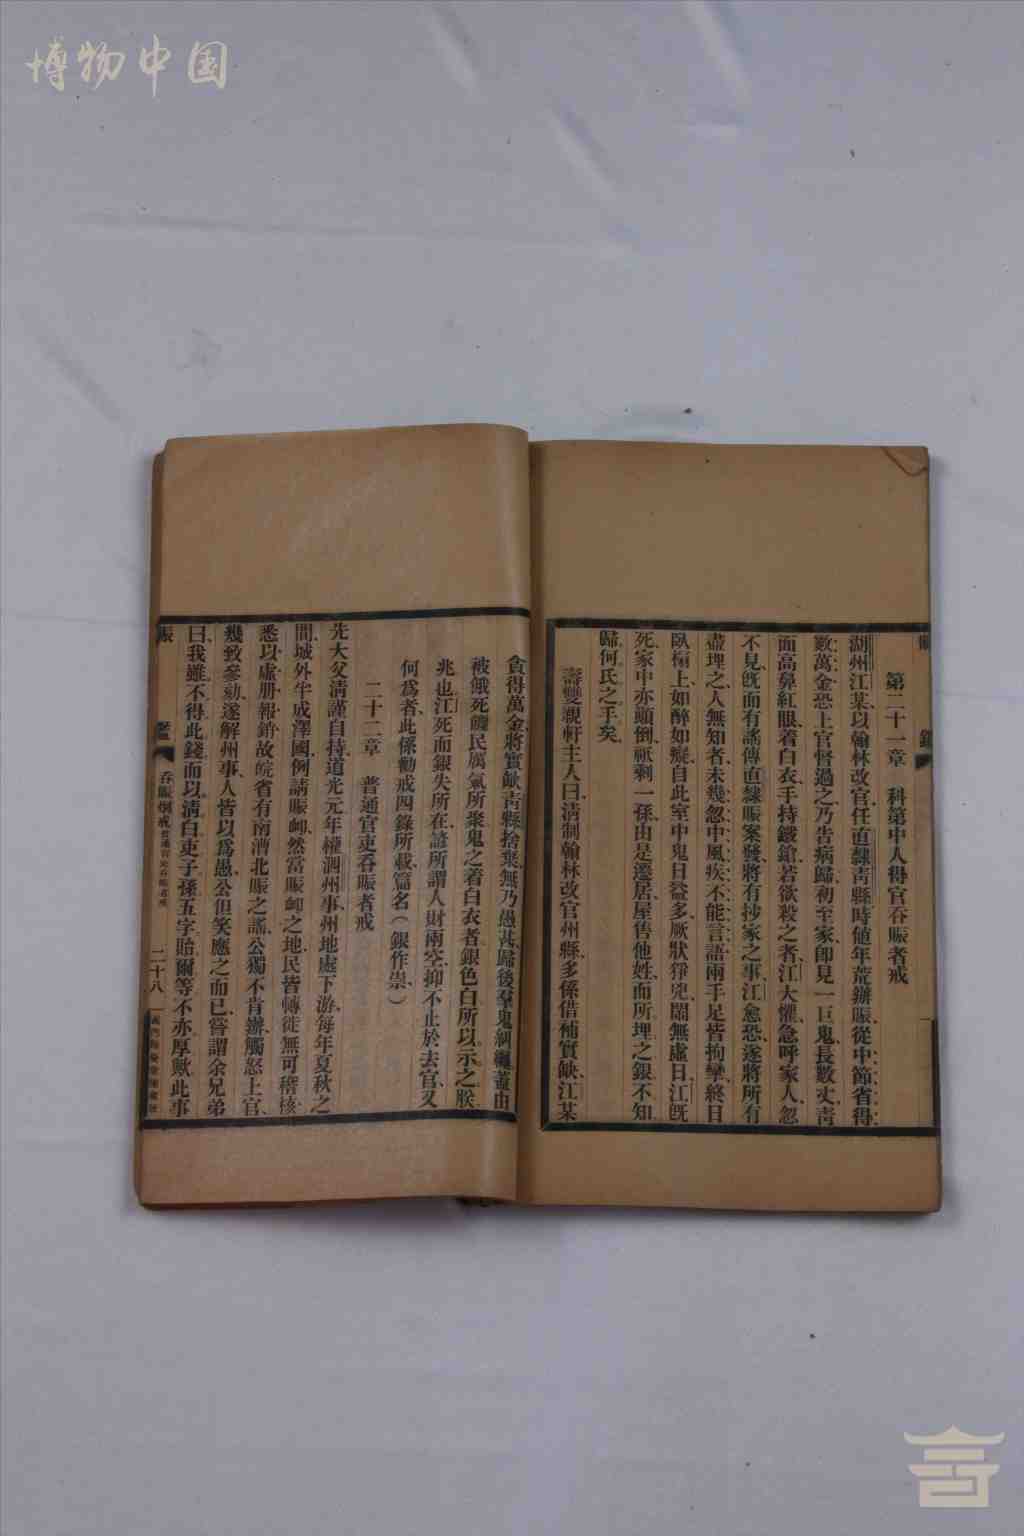 博物中国
第二十一章　科第中人得官吞賑者戒
湖州江某、以翰林改官、任直隸靑縣、時値年荒辦賑、從中節省得
數萬金、恐上官督過之、乃吿病歸、初至家、卽見一巨鬼、長數丈、靑
面高鼻紅眼、着白衣、手持鐵鎗、若欲殺之者、江大懼、急呼家人、忽
不見、旣而有謠傳直隸賑案發、將有抄家之事、江愈恐、遂將所有
盡埋之、人無知者、未幾忽中風疾、不能言語、兩手足皆拘攣、終日
臥榻上、如醉如癡、自此室中鬼日益多、厥狀猙兇、鬧無虛日、江旣
死、家中亦顚倒、祇剩一孫、由是遷居、屋售他姓、而所埋之銀、不知
歸何氏之手矣、
壽雙親軒主人曰、淸制翰林改官州縣、多係借補實缺、江某
貪得萬金、將實缺靑縣捨棄、無乃愚甚、歸後羣鬼綢繆、蓋由
被餓死饑民厲氣所聚、鬼之着白衣者、銀色白、所以示之朕
兆也、江死而銀失所在、諺所謂人財兩空、抑不止於去官、又
何爲者、此係勸戒四錄所載、篇名（銀作祟、）
二十二章　普通官吏吞賑者戒
先大父淸謹自持、道光元年、權泗州事、州地處下游、每年夏秋之
間、城外半成澤國、例請賑卹、然當賑卹之地、民皆轉徙、無可稽核、
悉以虛册報銷、故皖省有南漕北賑之謠、公獨不肯辦、觸怒上官、
幾致參劾、遂解州事、人皆以爲愚、公但笑應之而已、嘗謂余兄弟
曰、我雖不得此錢、而以淸白吏子孫五字、貽爾等、不亦厚歟、此事
賑　鑑　吞賑炯戒　普通官吏吞賑者戒　二十八